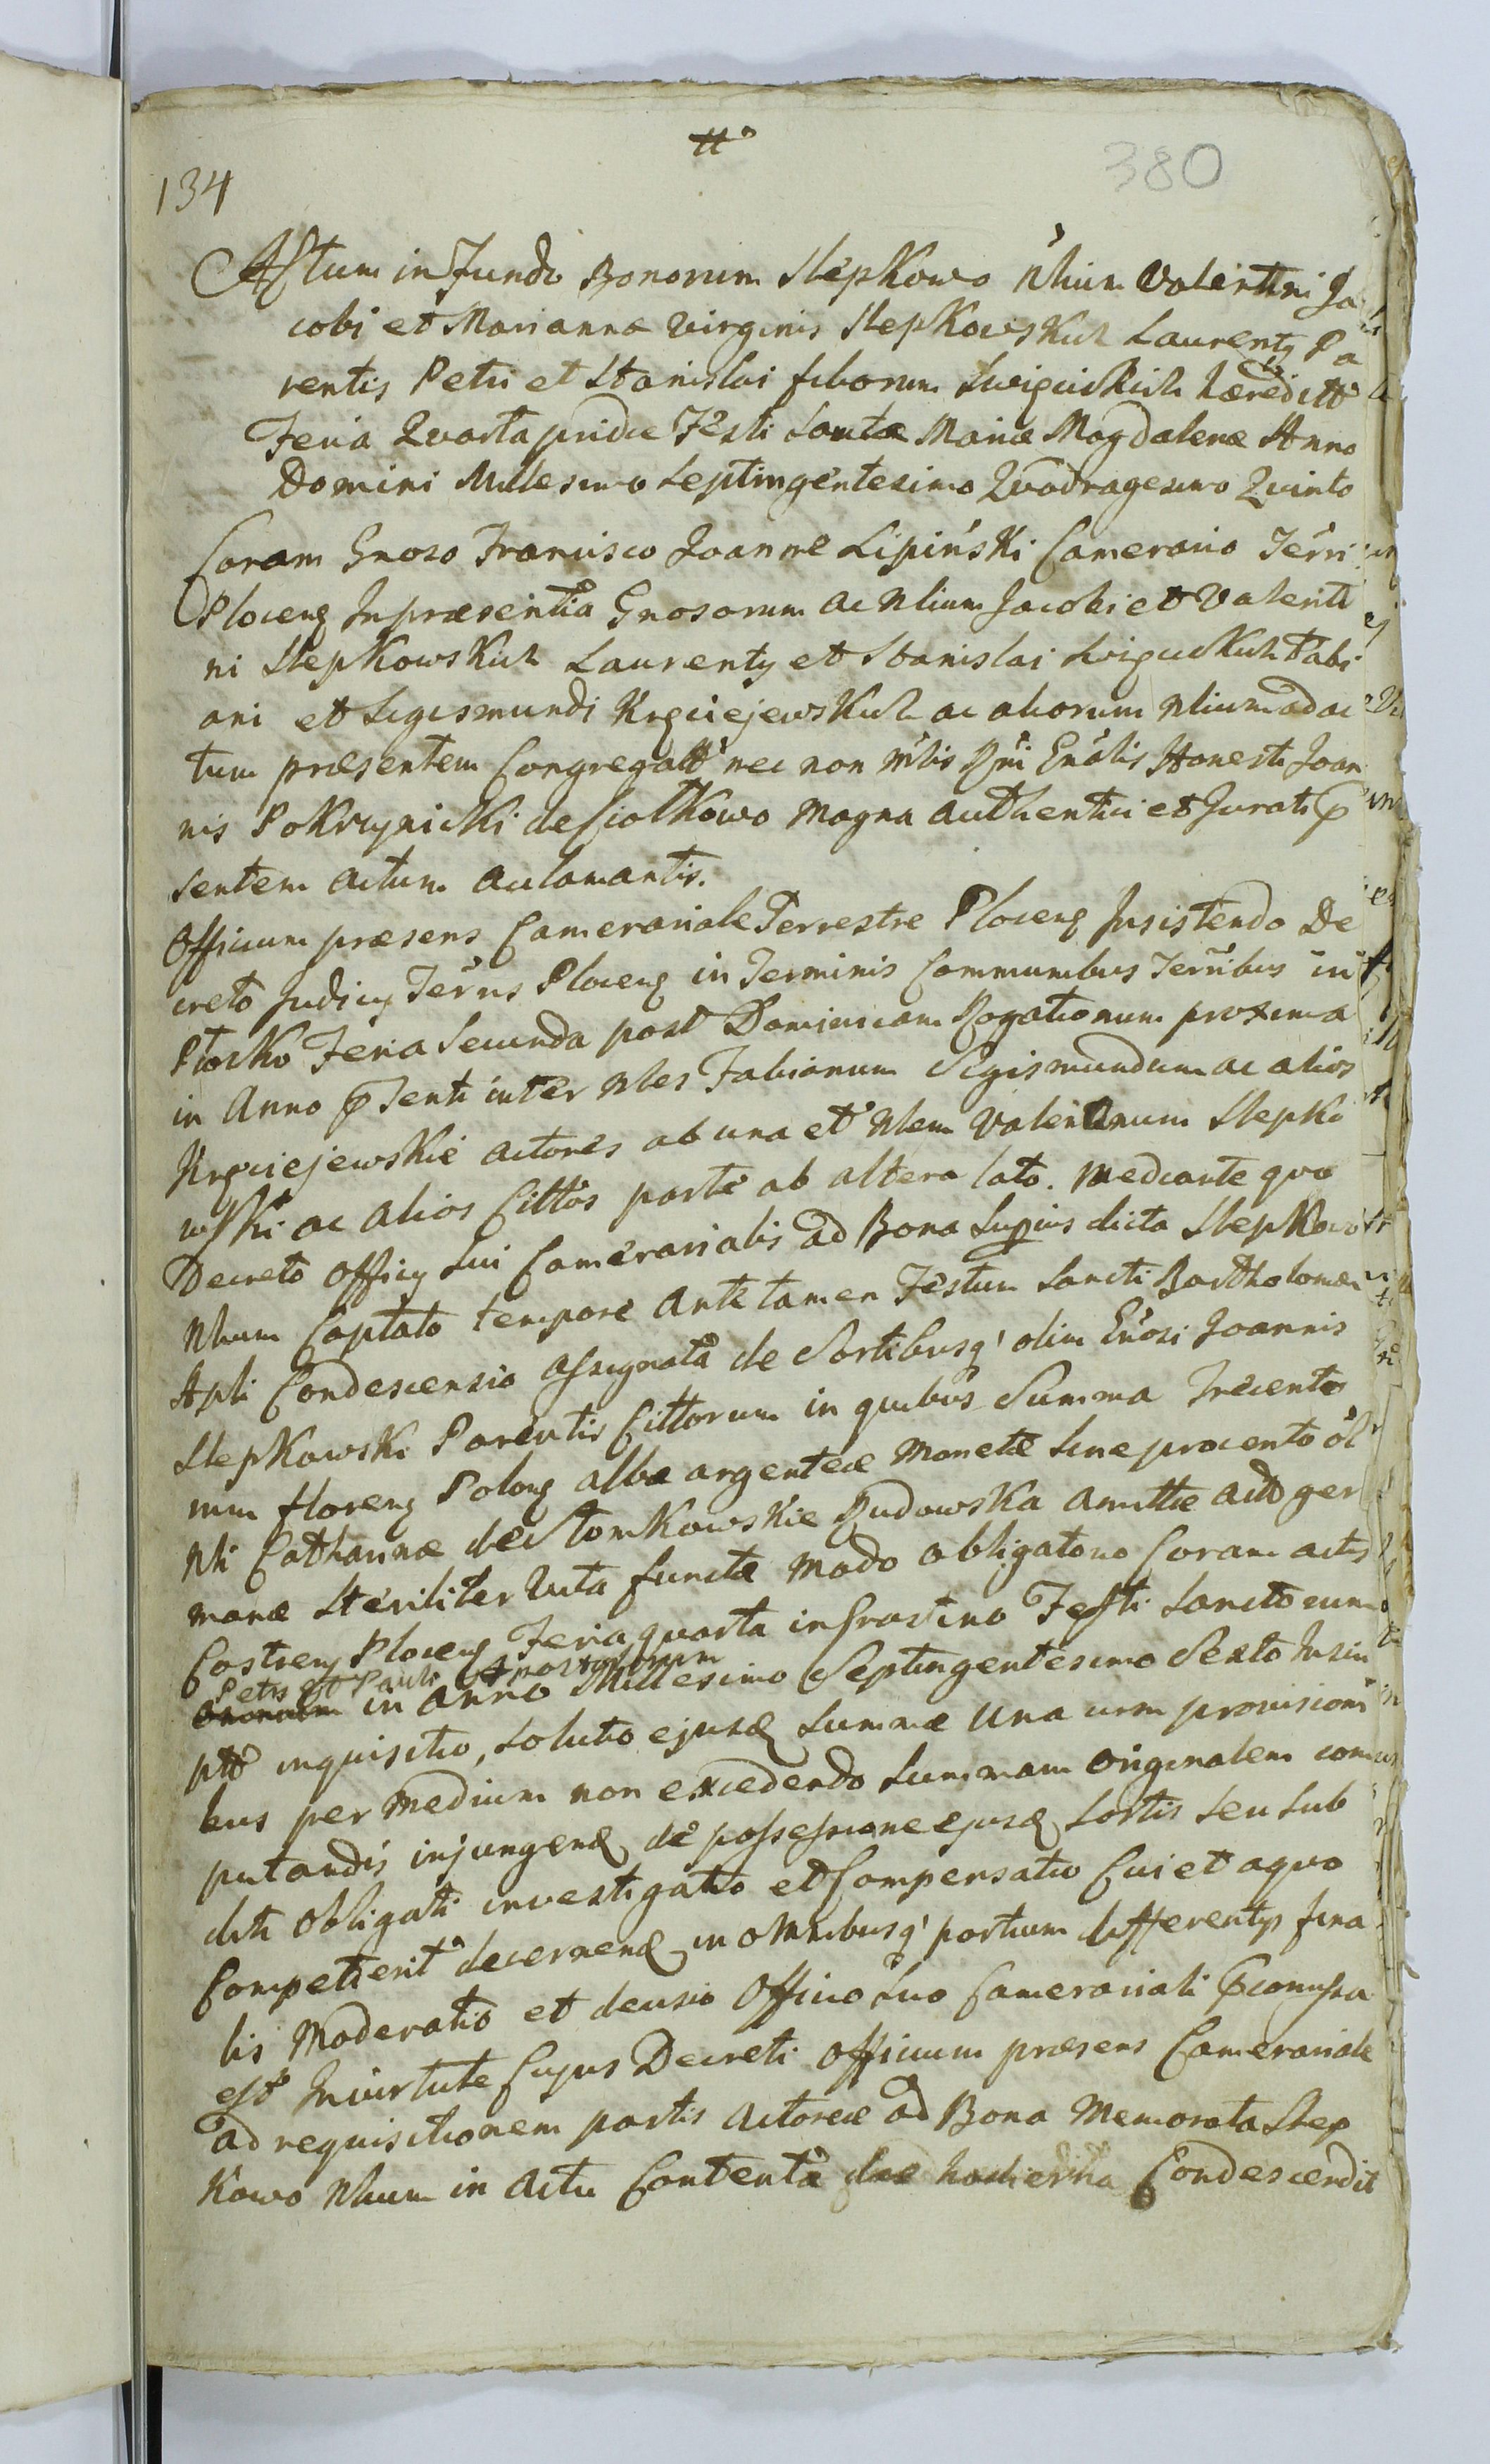 134
380
Actum in Fundo Bonorum Slepkowo Nlium Valentini Ja
cobi et Mariannæ Virginis Slepkowskich Laurentij Pa
rentis Petri et Stanislai filiorum Swięcickich hæredittr
Feria Quarta pridie Festi Sanctæ Mariæ Magdalenæ Anno
Domini Millesimo Septingentesimo Quadragesimo Quinto
Coram Gnoso Francisco Joanne Lipiński Camerario Terri
Plocens In præsentia Gnosorum ac Nlium Jacobi et Valenti
ni Slepkowskich Laurentij et Stanislai Swięcickich Fabi
ani et Sigismundi Kręciejewskich ac aliorum Nlium ad ac
tum præsentem Congregatt nec non mtis Rni Gnalis Honesti Joan
nis Pokrzynicki de Ciołkowo Magna authentici et Jurati p
sentem actum aclamantis.
Officium præsens Camerariale Terrestre Plocens Insistendo De
creto Judicij Terris Plocens in Terminis Communibus Terribus in
Płocko Feria Secunda post Dominicam Rogationum proxima
in Anno psenti inter Nles Fabianum Sigismundum ac alios
Kręciejewskie actores ab una et Nlem Valentinum Slepko
wski ac alios Cittos parte ab altera lato. Mediante quo
Decreto Officij Sui Camerarialis ad Bona Superius dicta Slepkowo
Nlium Captato tempore ante tamen Festum Sancti Bartholomæi
Apli Condescensio assignata de Sortibusq olim Gnosi Joannis
Slepkowski Parentis Cittorum in quibus Summa Trecento
rum florens Polons albæ argenteæ Monetæ Sine procento ol
Nli Catharinæ de Słomkowskie Rudowska amittæ actt ger
manæ Steriliter Vita functæ modo obligatorio Coram actis
Castren Plocens Feria quarta in Crastino Festi Sanctorum
Petri et Pauli Apostolorum
in Anno Millesimo Septingentesimo Sexto Inscri
ptt inquisitio, Solutio ejusd Summæ Una cum provisioni
bus per Medium non excedendo Summam Originalem com
putandis injungend de possessione ejusd Sortis Seu Sub
diti Obligati investigatio et Compensatio Cui et a quo
Competierit decernend in omnibusq partium differentijs fina
lis Moderatio et decisio Officio Suo Camerariali pcomissa
est In virtute Cujus Decreti Officium præsens Camerariale
ad requisitionem partis actoreæ ad Bona Memorata Slep
kowo Nlium in actu Contenta die hodierna Condescendit